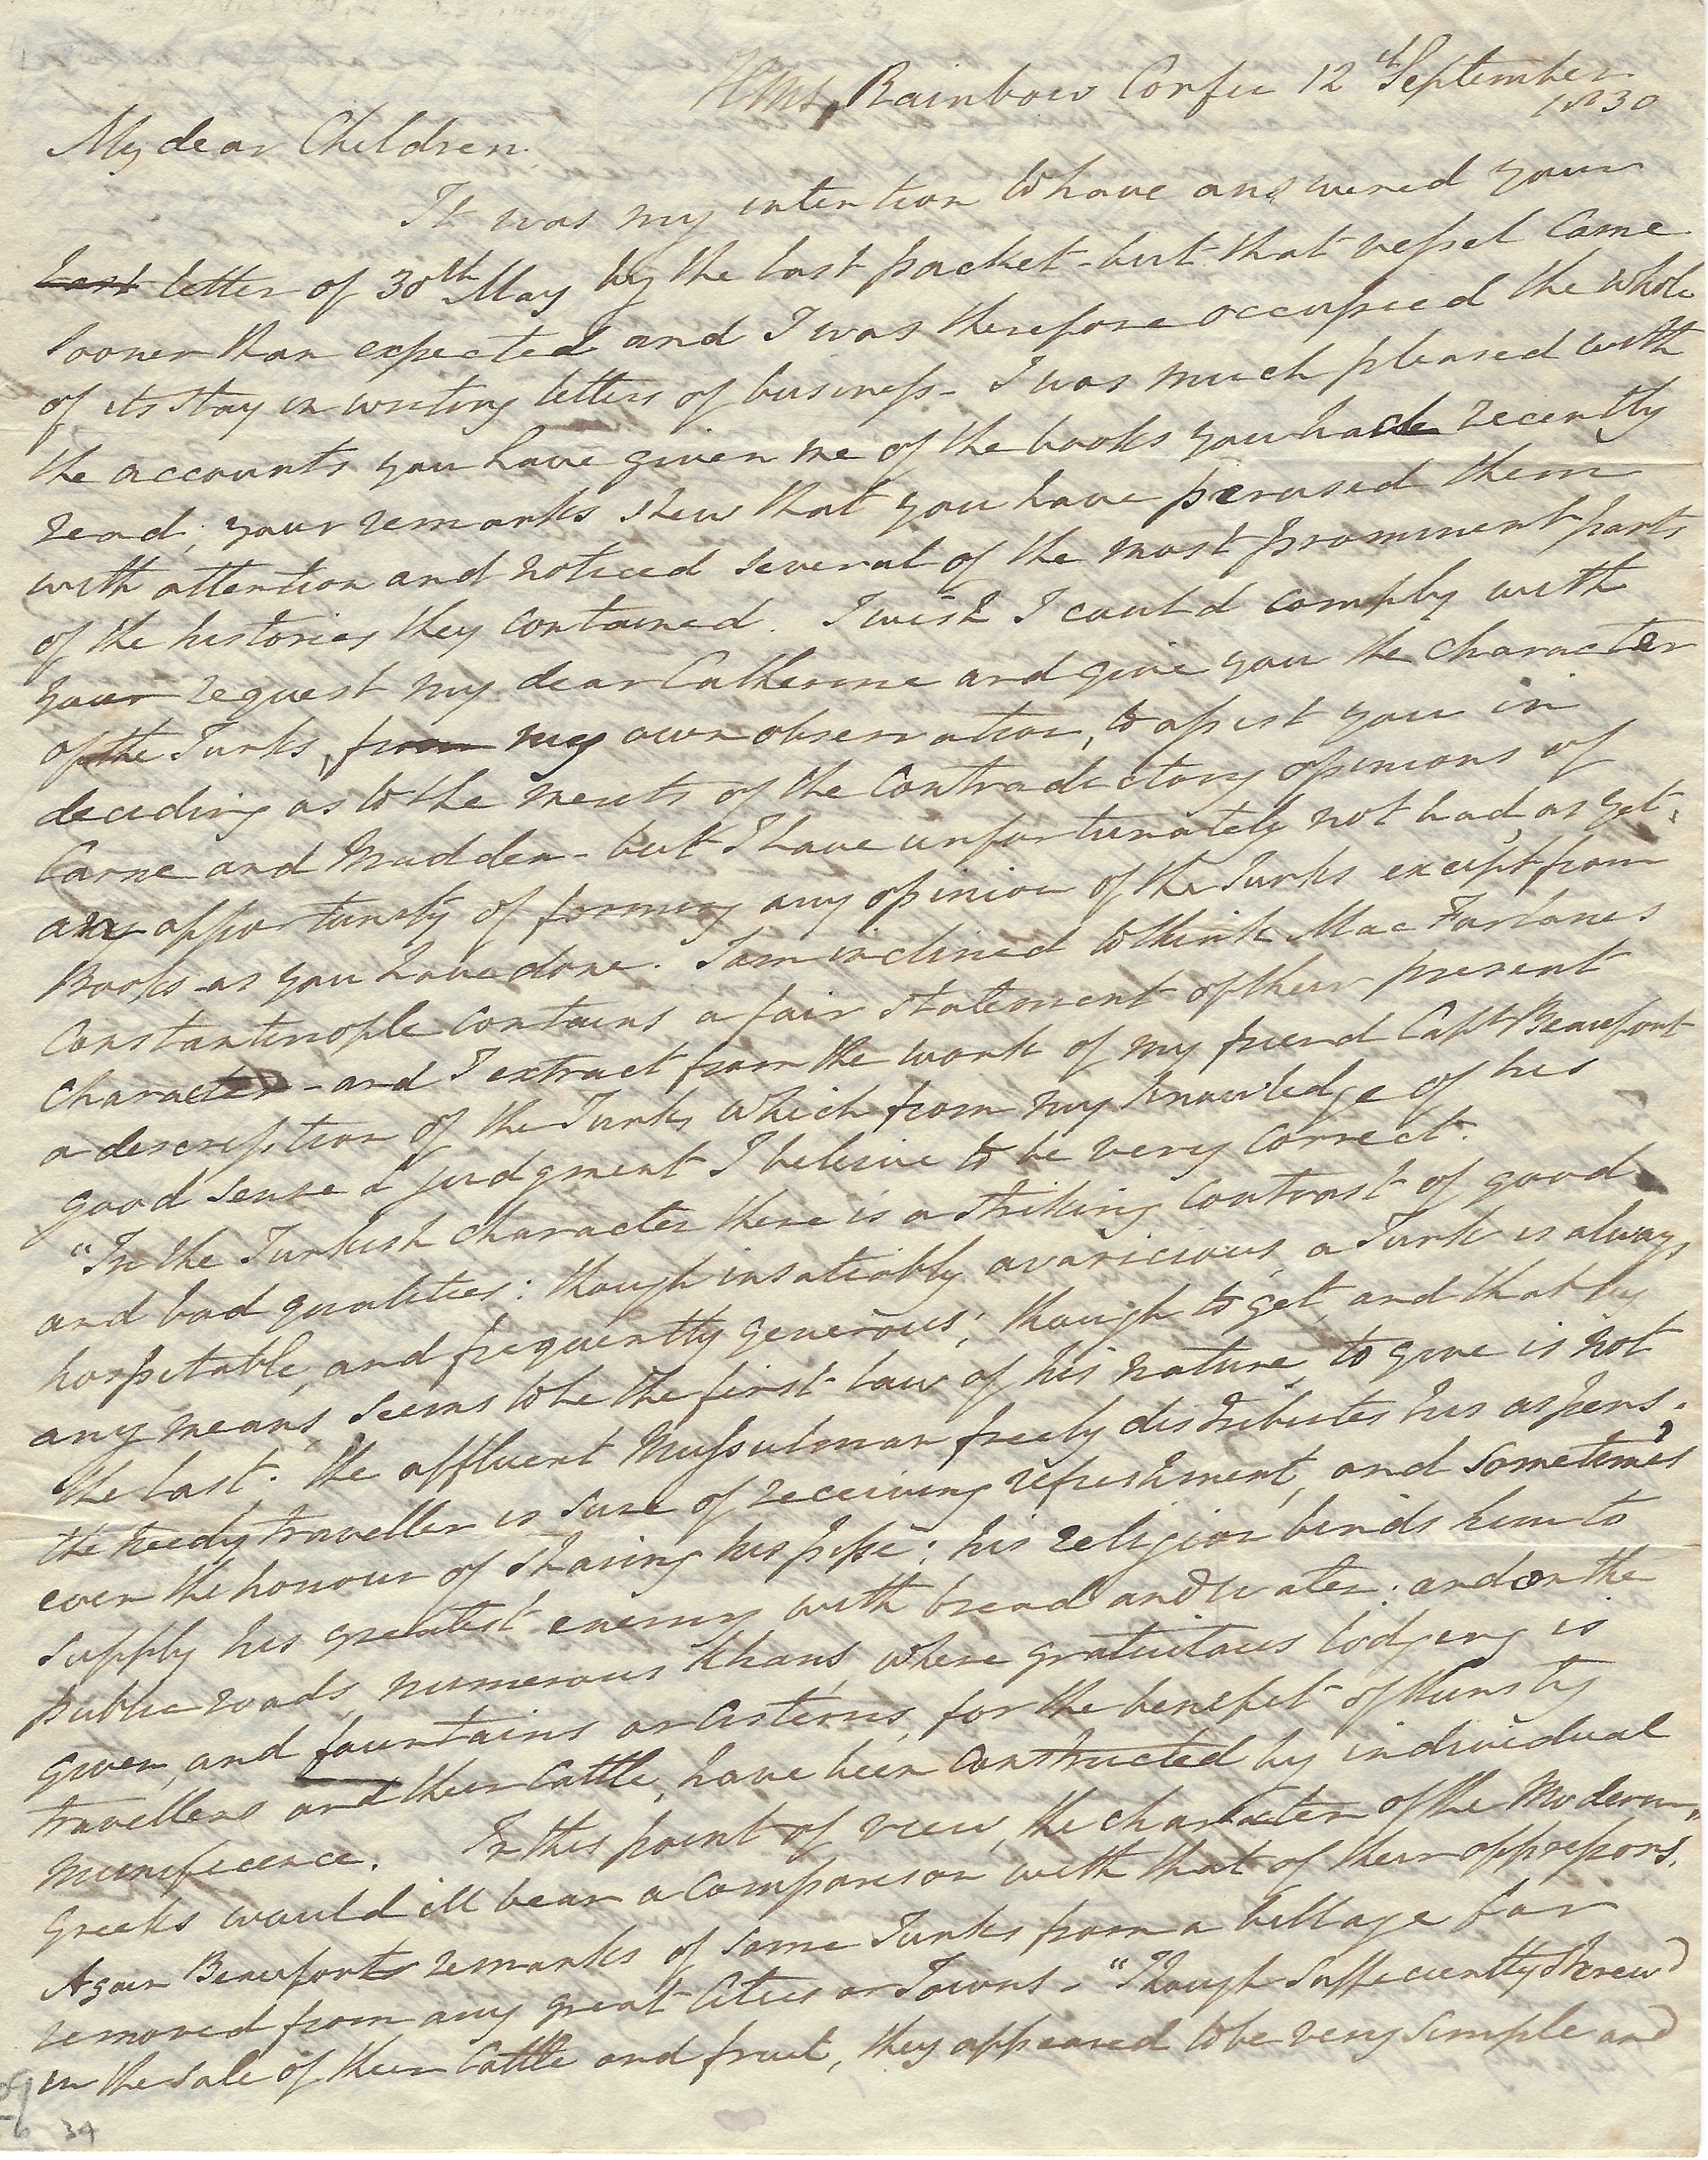 HMS Rainbow Corfu 12th September
1830
My dear Children.
It was my intention to have answered your
last letter of 30th May by the last packet - but that vessel came
sooner than expected and I was therefore occupied the whole
of its stay in writing letters of business - I was much pleased with
the accounts you have given me of the books you had recently
read; your remarks shew that you have perused them
with attention and noticed several of the most prominent parts
of the histories they contained. I wish I could comply with
your request my dear Catherine and give you the character
of the Turks, from my own observation, to assist you in
deciding as to the merits of the contradictory opinions of
Carne and Madden - but I have unfortunately not had, as yet,
any opportunity of forming any opinion of the Turks except from
Books - as you have done. I am inclined to think Mac Farlanes
Constantinople contains a fair statement of their present
character - and I extract from the work of my friend Capt Beaufort
a description of the Turks which from my knowledge of his
good sense & judgment I believe to be very correct.
"In the Turkish character there is a striking contrast of good
and bad qualities: though insatiably avaricious, a Turk is always
hospitable, and frequently generous; though to get, and that by
any means, seems to be the first law of his nature, to give is not
the last. the affluent Mussulman freely distributes his aspers;
the needy traveller is sure of receiving refreshment, and sometimes
even the honour of sharing his pipe: his religion binds him to
supply his greatest enemy with bread and water: and on the
public roads, numerous Khans, where gratuitous lodging is
given, and fountains or cisterns, for the benefit of thirsty
travellers and their cattle, have been constructed by individual
munificence. In this point of view, the character of the Modern
Greeks would ill bear a comparison with that of their oppressors."
Again Beaufort remarks of some Turks from a village far
removed from any great Cities or Towns - "Though sufficiently shrewd
in the sale of their Cattle and fruit, they appeared to be very simple and
34